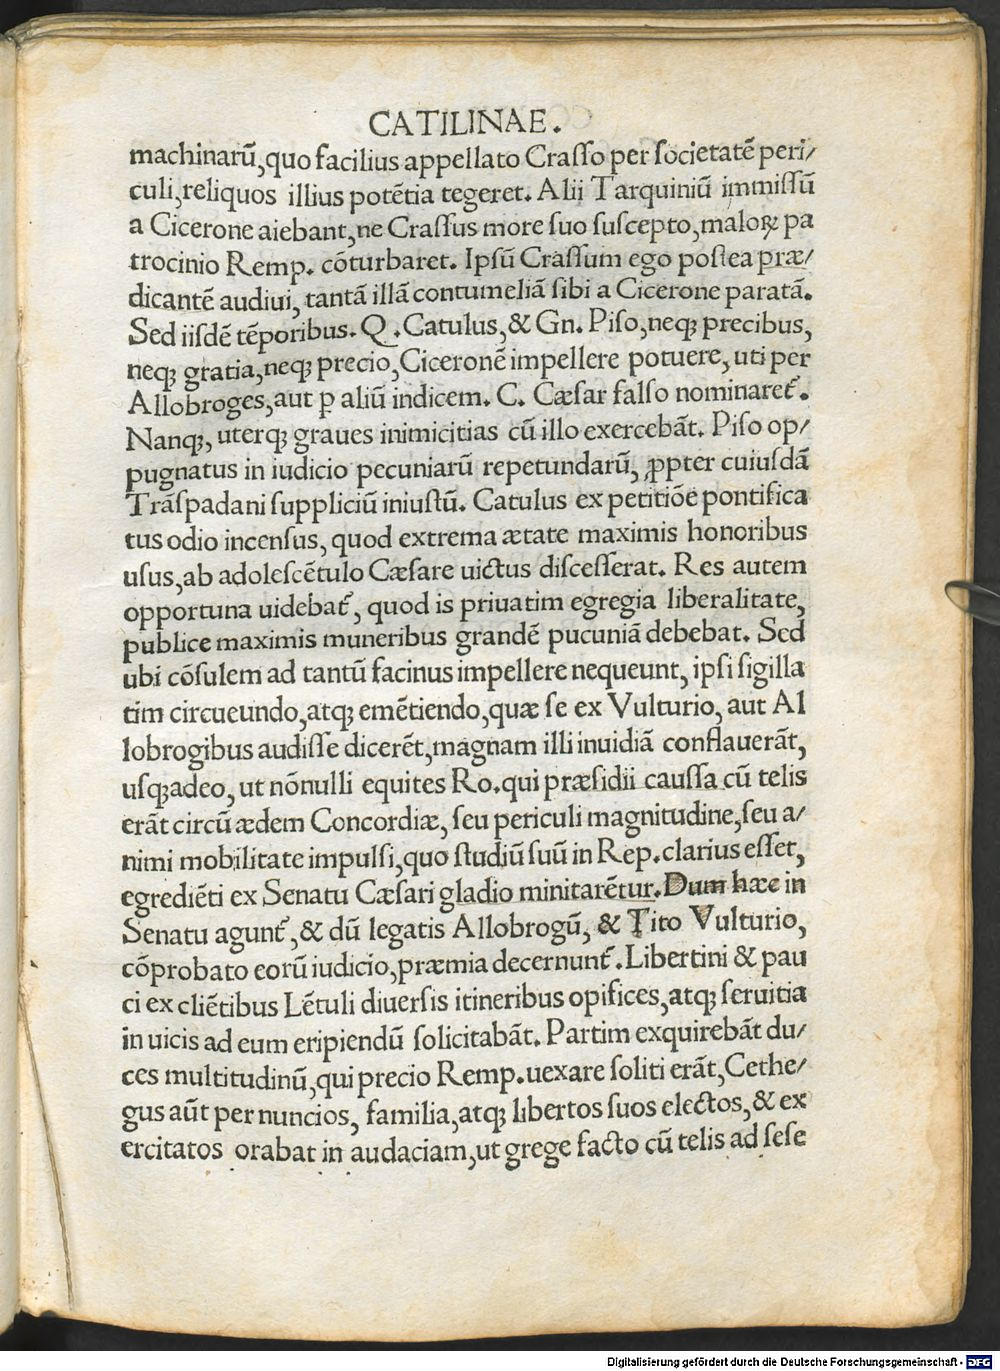 CATILINAE.
machinarū,quo facilius appellato Crasſo per ſocietatē peri/
culi,reliquos illius potētia tegeret. Alii Tarquiniū immiſſū
a Cicerone aiebant,ne Craſſus more ſuo ſuſcepto,maloꝝ pa
trocinio Remp. cōturbaret. Ipſū Craſſum ego poſtea præ/
dicantē audiui, tantā illā contumeliā ſibi a Cicerone paratā.
Sed iiſdē tēporibus. Q. Catulus,& Gn. Piſo,neqꝫ precibus,
neqꝫ gratia,neqꝫ precio,Ciceronē impellere potuere,uti per
Allobroges,aut ꝑ aliū indicem. C. Cæſar falſo nominareť.
Nanqꝫ, uterqꝫ graues inimicitias cū illo exercebāt. Piſo op/
pugnatus in iudicio pecuniarū repetundarū, ꝓpter cuiuſdā
Trāſpadani ſuppliciū iniuſtū. Catulus ex petitiōe pontifica
tus odio incenſus, quod extrema ætate maximis honoribus
uſus,ab adoleſcētulo Cæſare uictus diſceſſerat. Res autem
opportuna uidebať, quod is priuatim egregia liberalitate,
publice maximis muneribus grandē pucuniā debebat. Sed
ubi cōſulem ad tantū facinus impellere nequeunt, ipſi ſigilla
tim circueundo,atqꝫ emētiendo,quæ ſe ex Vulturio, aut Al
lobrogibus audiſſe dicerēt,magnam illi inuidiā conflauerāt,
uſqꝫadeo, ut nōnulli equites Ro.qui præſidii cauſſa cū telis
erāt circū ædem Concordiæ, ſeu periculi magnitudine,ſeu a/
nimi mobilitate impulſi,quo ſtudiū ſuū in Rep.clarius eſſet,
egrediēti ex Senatu Cæſari gladio minitarētur.Dum hæc in
Senatu agunť,& dū legatis Allobrogū, & Tito Vulturio,
cōprobato eorū iudicio,præmia decernunť.Libertini & pau
ci ex cliētibus Lētuli diuerſis itineribus opifices,atqꝫ ſeruitia
in uicis ad eum eripiendū ſolicitabāt. Partim exquirebāt du/
ces multitudinū,qui precio Remp.uexare ſoliti erāt,Cethe/
gus aūt per nuncios, familia,atqꝫ libertos ſuos electos,& ex
ercitatos orabat in audaciam,ut grege facto cū telis ad ſeſe
Digitalisierung gefördert durch die Deutsche Forschungsgemeinschaft - DFG